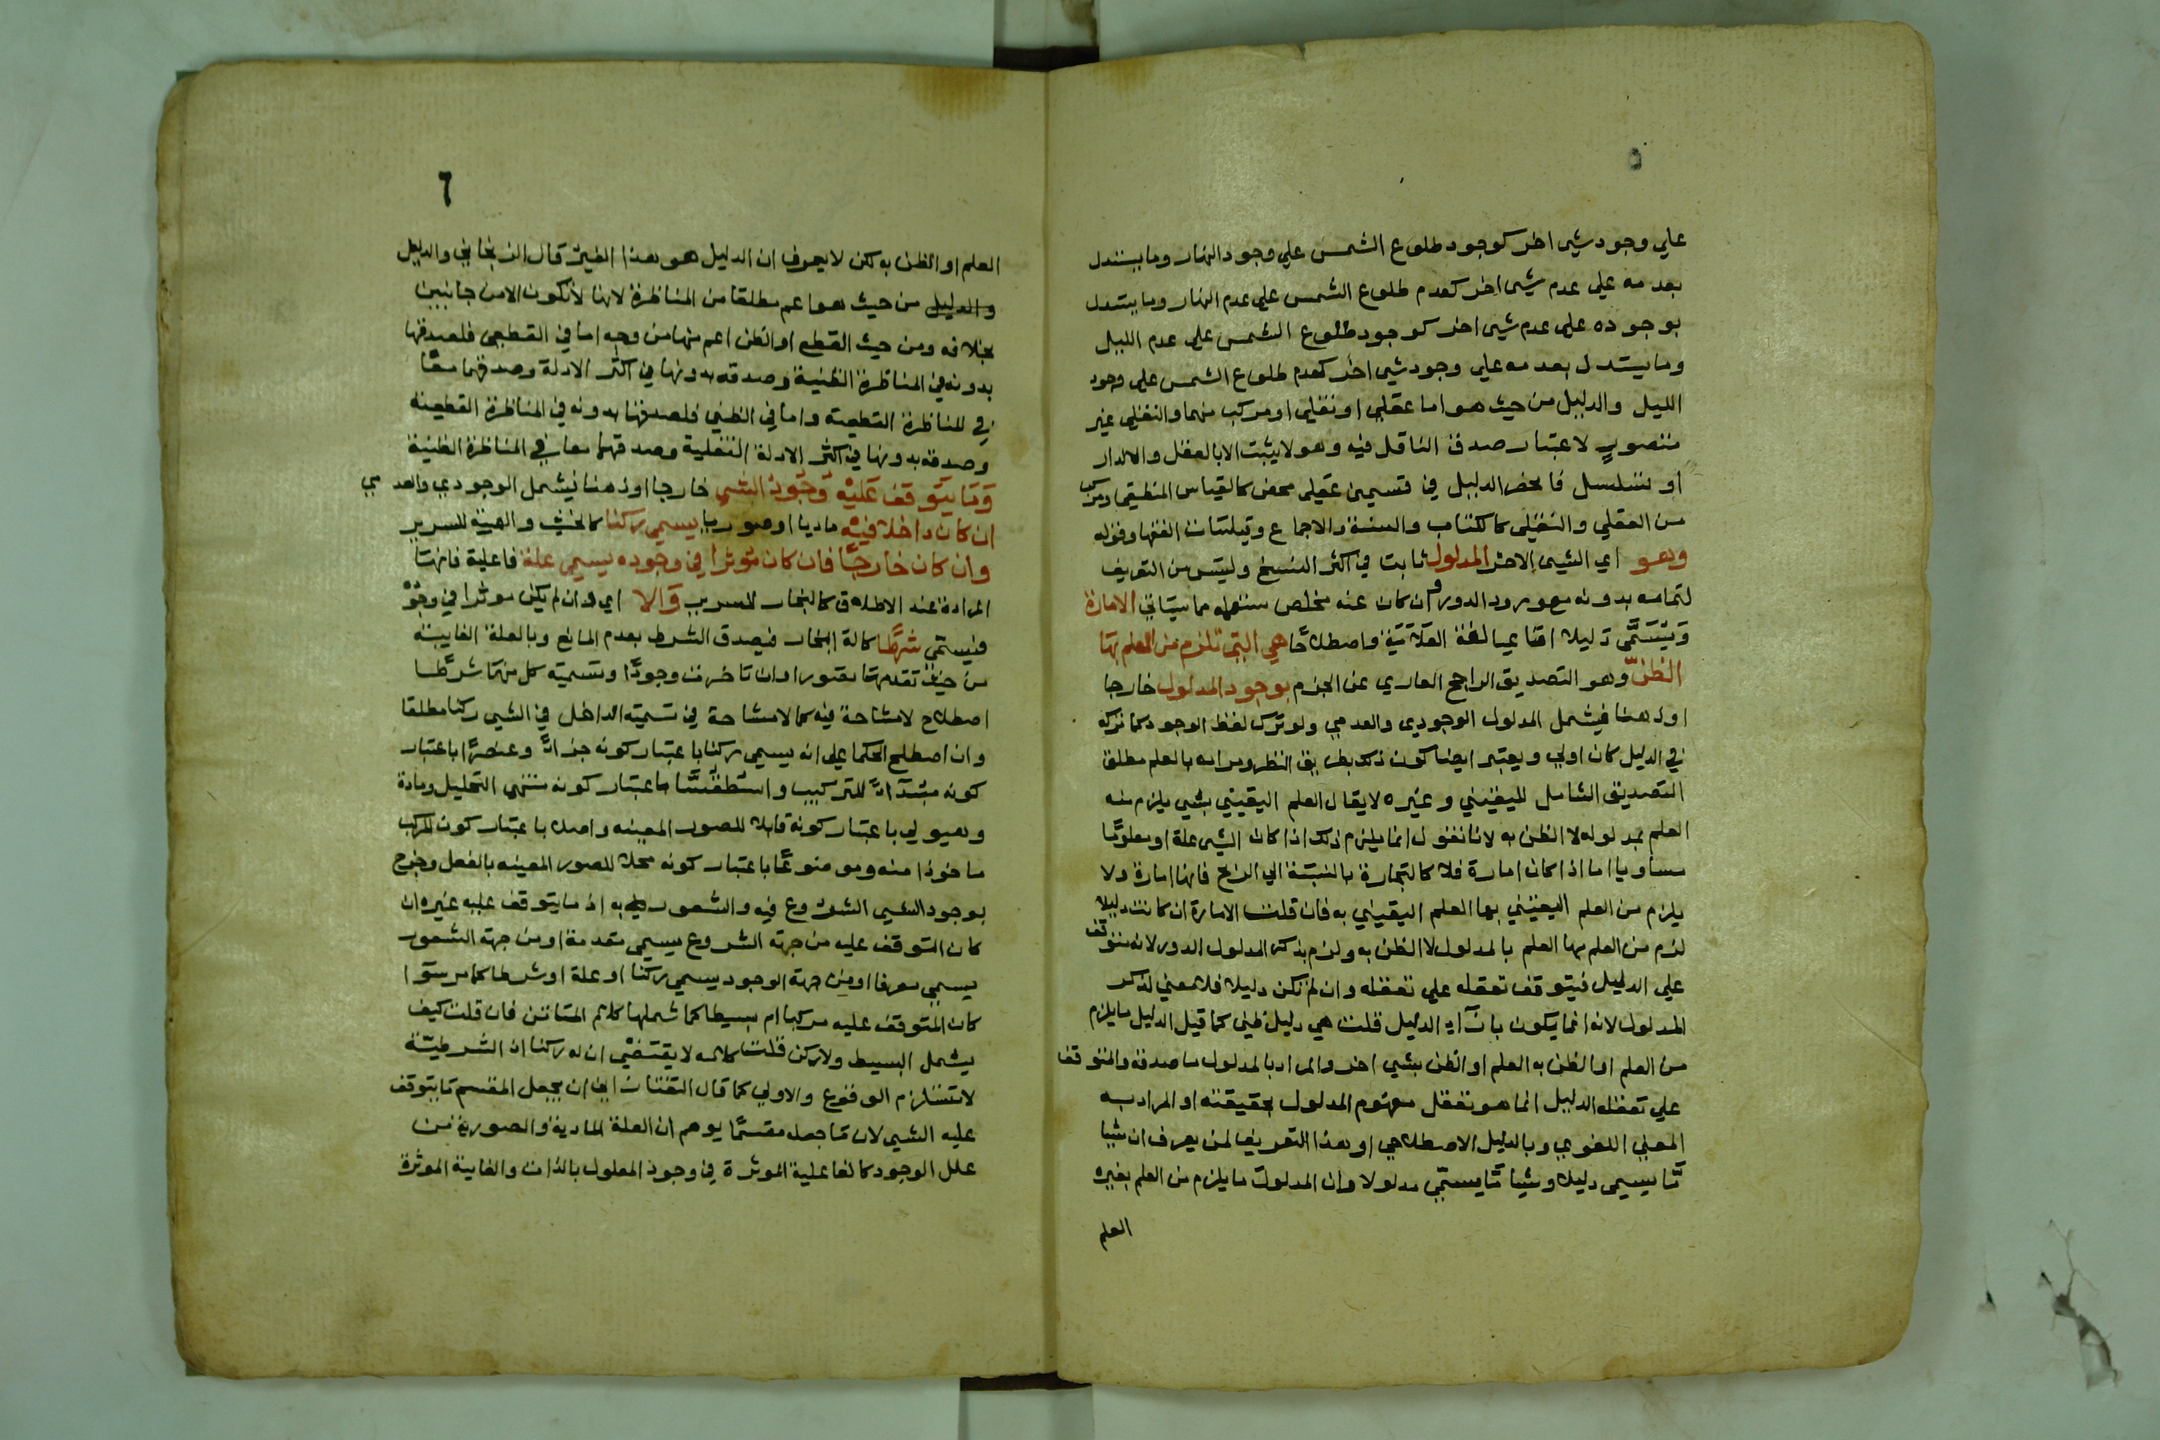 ٥
علي وجود شي اخر كوجود طلوع الشمس علي وجود النهار وما يستدل
بعدمه علي عدم شي اخر كعدم طلوع الشمس علي عدم النهار وما يستدل
بوجوده علي عدم شي اخر كوجود طلوع الشمس علي عدم الليل
وما يستدل بعدمه علي وجود شي اخر كعدم طلوع الشمس علي وجود
الليل والدليل من حيث هو اما عقلي او نقلي او مركب منهما والنقلي غير
متصور لاعتبار صدق الناقل فيه وهو لا يثبت الا بالعقل والا لدار
او تسلسل فانحصر الدليل في قسمين عقلي محض كالقياس المنطقي ومركب
من العقلي والنقلي كالكتاب والسنة والاجماع وقياسات الفقها وقوله
وهو اي الشي الاخر المدلول ثابت في اكثر النسخ وليس من التعريف
لتمامه بدونه مع ورود الدور وان كان عنه مخلص ستعلمه مما سياتي الامارة
وتسمي دليلا اقناعيا لغة العلامة واصطلاحا هي التي تلزم من العلم بها
الظن وهو التصديق الراجح العاري عن الجزم بوجود المدلول خارجا
او ذهنا فيشمل المدلول الوجودي والعدمي ولو ترك لفظ الوجود كما تركه
في الدليل كان اولي ويعتبر ايضا كون ذلك بطريق النظر ومراده بالعلم مطلق
التصديق الشامل لليقيني وغيره لا يقال العلم اليقيني بشي يلزم منه
العلم بمدلوله لا الظن به لانا نقول انما يلزم ذلك اذا كان الشي علة او معلولا
مساويا اما اذا كان امارة فلا كالتجارة بالنسبة الي الربح فانها امارة ولا
يلزم من العلم اليقيني بها العلم اليقيني به فان قلت الامارة ان كانت دليلا
لزم من العلم بها العلم بالمدلول لا الظن به ولزم بذكر المدلول الدور لانه متوقف
علي الدليل فيتوقف تعقله علي تعقله وان لم تكن دليلا فلا معني لذكر
المدلول لانه انما يكون بازاء الدليل قلت هي دليل ظني كما قيل الدليل ما يلزم
من العلم او الظن به العلم او الظن بشي اخر والمراد بالمدلول ما صدقه والمتوقف
علي تعقله الدليل انما هو تعقل مفهوم المدلول بحقيقته او المراد به
المعني اللغوي وبالدليل الاصطلاحي او هذا التعريف لمن يعرف ان شيا
ما يسمي دليلا وشيا ما يسمي مدلولا وان المدلول ما يلزم من العلم بغيره
العلم
٦
العلم او الظن به لكن لا يعرف ان الدليل هو هذا الغير قال الزنجاني والدليل
والدليل من حيث هو اعم مطلقا من المناظرة لانها لا تكون الا من جانبين
بخلافه ومن حيث القطع او الظن اعم منها من وجه اما في القطعي فلصدقها
بدونه في المناظرة الظنية وصدقه بدونها في اكثر الادلة وصدقهما معا
في المناظرة القطعية واما في الظني فلصدقها بدونه في المناظرة القطعية
وصدقه بدونها في اكثر الادلة النقلية وصدقهما معا في المناظرة الظنية
وما يتوقف عليه وجود الشي خارجا او ذهنا فيشمل الوجودي والعدمي
ان كان داخلا فيه ماديا او صوريا يسمي ركنا كالخشب والهيئة للسرير
وان كان خارجا فان كان موثرا في وجوده يسمي علة فاعلية فانها
المرادة عند الاطلاق كالنجار للسرير والا اي وان لم يكن موثرا في وجوده
فيسمي شرطا كالة النجار فيصدق الشرط بعدم المانع وبالعلة الغايية
من حيث تقدمها تصورا وان تاخرت وجودا وتسمية كل منها شرطا
اصطلاح لا مشاحة فيه كما لا مشاحة في تسمية الداخل في الشي ركنا مطلقا
وان اصطلح الحكما علي انه يسمي ركنا باعتبار كونه جزا وعنصرا باعتبار
كونه مبتدا للتركيب واسطقسا باعتبار كونه منتهي التحليل ومادة
وهيولي باعتبار كونه قابلا للصور المعينة واصلا باعتبار كون المركب
ماخوذا منه وموضوعا باعتبار كونه محلا للصور المعينة بالفعل وخرج
بوجود الشي الشروع فيه والشعور به اذ ما يتوقف عليه غيره ان
كان المتوقف عليه من جهة الشروع يسمي مقدمة او من جهة الشعور
يسمي معرفا او من جهة الوجود يسمي ركنا او علة او شرطا كما مر سوا
كان المتوقف عليه مركبا ام بسيطا كما شملها كلام الماتن فان قلت كيف
يشمل البسيط ولا ركن قلت كلامه لا يقتضي ان له ركنا اذ الشرطية
لا تستلزم الوقوع والاولي كما قال التفتازاني ان يجعل المقسم ما يتوقف
عليه الشي لان ما جعله مقسما يوهم ان العلة المادية والصورية من
علل الوجود كالفاعلية الموثرة في وجود المعلول بالذات والغاية الموثرة